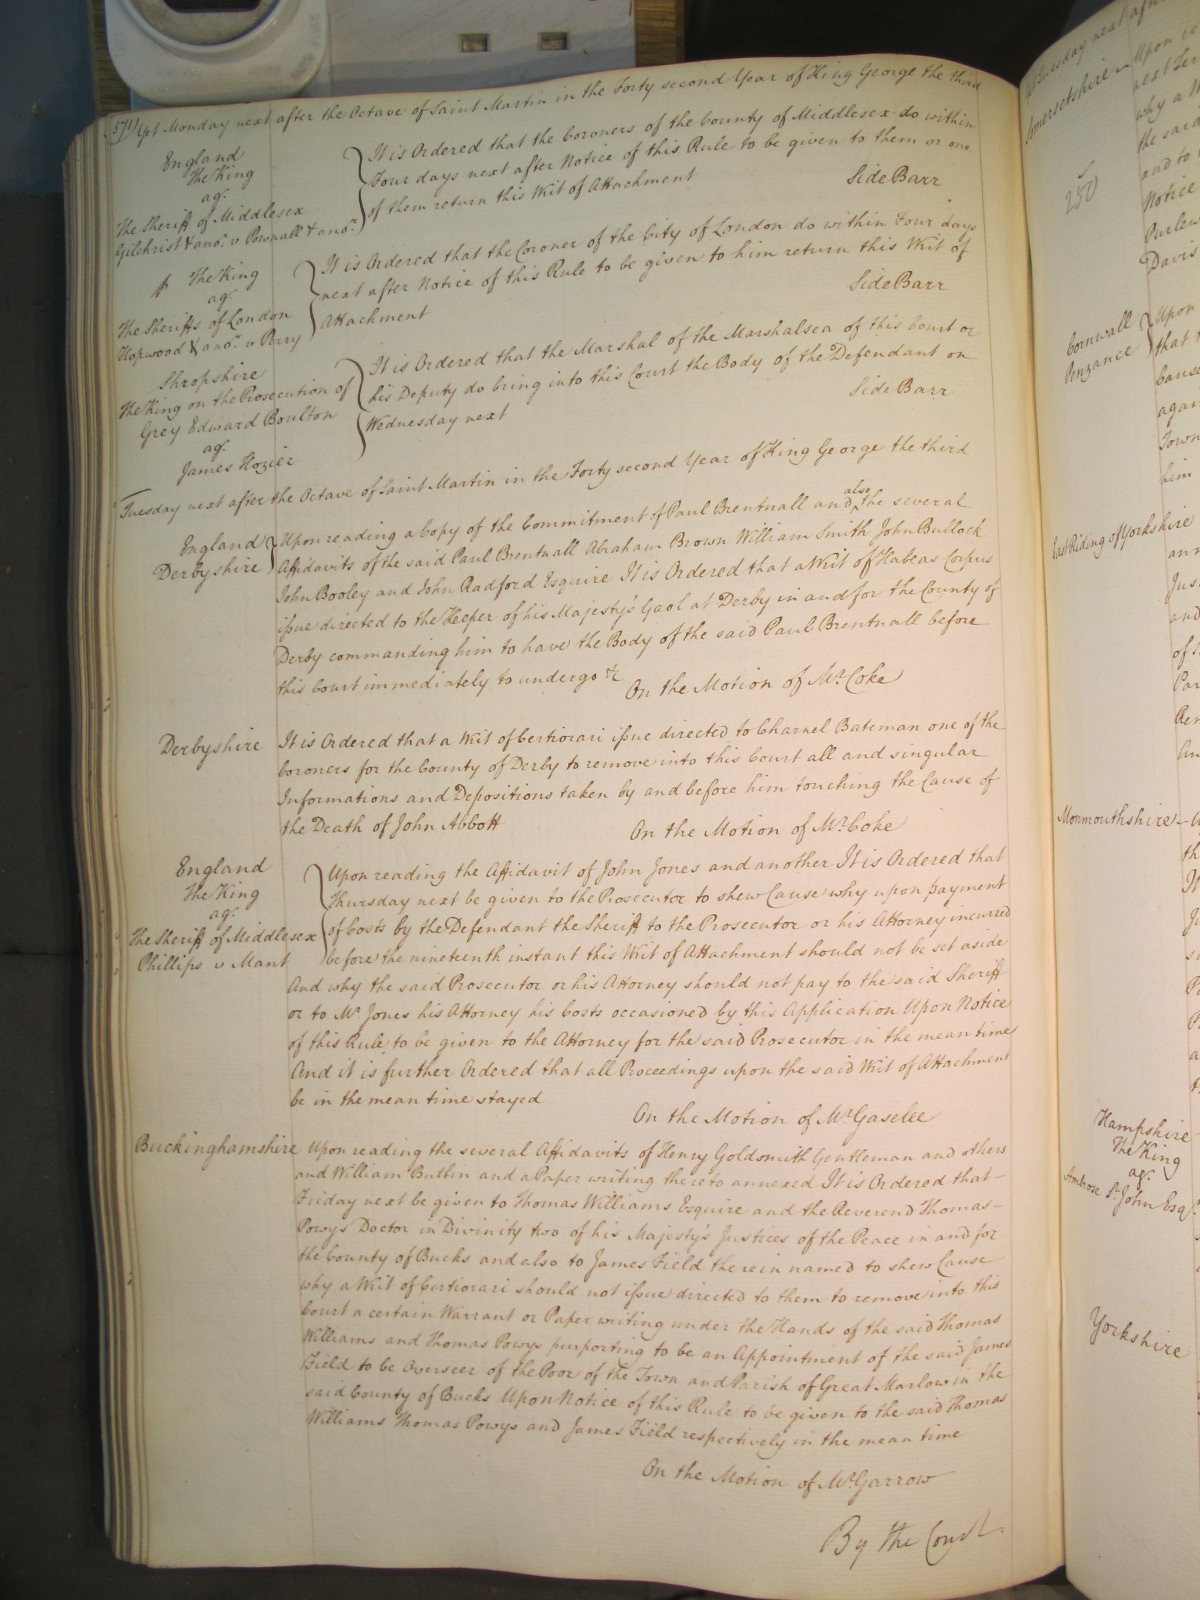 Yet Monday next after the Octave of Saint Martin in the Forty second Year of King George the third
England
The King
agt
The Sheriff of Middlesex
Gilchrist & anor v Pownall & anor
It is Ordered that the Coroners of the County of Middlesex do within
Four days next after Notice of this Rule to be given to them or one
of them return this Writ of Attachment
Side Barr
The King
agt
The Sheriffs of London
Hopwood & anor v Perry
It is Ordered that the Coroner of the City of London do within Four days
next after Notice of this Rule to be given to him return this Writ of
Attachment
Side Barr
Shropshire
The King on the Prosecution of
Grey Edward Boulton
agt
James Hozier
It is Ordered that the Marshal of the Marshalsea of this Court or
his Deputy do bring into this Court the Body of the Defendant on
Wednesday next
Side Barr
Tuesday next after the Octave of Saint Martin in the Forty second Year of King George the third
England
Derbyshire
Upon reading a Copy of the Commitment of Paul Brentnall and also the several
Affidavits of the said Paul Brentnall Abraham Brown William Smith John Bullock
John Booley and John Radford Esquire It is Ordered that a Writ of Habeas Corpus
issue directed to the Keeper of his Majesty's Gaol at Derby in and for the County of
Derby commanding him to have the Body of the said Paul Brentnall before
this Court immediately to undergo &c
On the Motion of Mr Coke
Derbyshire
It is Ordered that a Writ of Certiorari issue directed to Charnel Bateman one of the
Coroners for the County of Derby to remove into this Court all and singular
Informations and Depositions taken by and before him touching the Cause of
the Death of John Abbott
On the Motion of Mr Coke
England
The King
agt
The Sheriff of Middlesex
Phillips v Mant
Upon reading the Affidavit of John Jones and another It is Ordered that
Thursday next be given to the Prosecutor to shew Cause why upon payment
of Costs by the Defendant the Sheriff to the Prosecutor or his Attorney incurred
before the nineteenth instant this Writ of Attachment should not be set aside
And why the said Prosecutor or his Attorney should not pay to the said Sheriff
or to Mr Jones his Attorney his Costs occasioned by this Application Upon Notice
of this Rule to be given to the Attorney for the said Prosecutor in the mean time
And it is further Ordered that all Proceedings upon the said Writ of Attachment
be in the mean time stayed
On the Motion of Mr Gaselee
Buckinghamshire
Upon reading the several Affidavits of Henry Goldsmith Gentleman and others
and William Butlin and a Paper writing thereto annexed It is Ordered that
Friday next be given to Thomas Williams Esquire and the Reverend Thomas
Powys Doctor in Divinity two of his Majesty's Justices of the Peace in and for
the County of Bucks and also to James Field therein named to shew Cause
why a Writ of Certiorari should not issue directed to them to remove into this
Court a certain Warrant or Paper writing under the Hands of the said Thomas
Williams and Thomas Powys purporting to be an Appointment of the said James
Field to be Overseer of the Poor of the Town and Parish of Great Marlow in the
said County of Bucks Upon Notice of this Rule to be given to the said Thomas
Williams Thomas Powys and James Field respectively in the mean time
On the Motion of Mr Garrow
By the Court
Tuesday next
Somersetshire
Upon
next
why a
the said
and to
Notice
Davis
250
Cornwall
Penzance
Upon
that
Cause
again
Town
him
East Riding of Yorkshire
Monmouthshire
Hampshire
The King
agt
Ambrose St John Esqr
Yorkshire